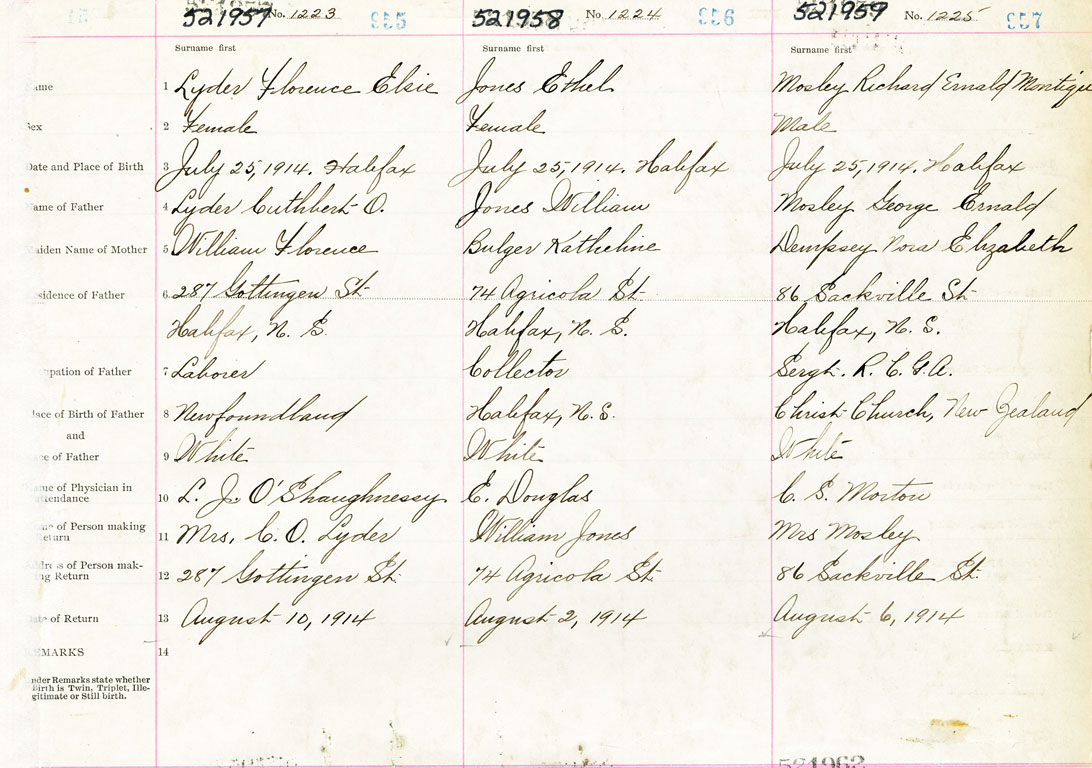 521957 No. 1223 955 521958 No 1224 956 521959 No. 1225 957
Surname first Surname first Surname first
ame 1 Lyder Florence Elsie Jones Ethel Mosley Richard Ernald Montigu
Sex 2 Female Female Male
Date and Place of Birth 3 July 25, 1914. Halifax July 25, 1914. Halifax July 25, 1914. Halifax
ame of Father 4 Lyder Cuthbert O. Jones William Mosley George Ernald
aiden Name of Mother 5 William Florence Bulger Katheline Dempsey Nora Elizabeth
sidence of Father 6 287 Gottingen St. 74 Agricola St. 86 Sackville St.
Halifax, N. S. Halifax, N. S. Halifax, N. S.
pation of Father 7 Laborer Collector Sergt. R. C. G. A.
lace of Birth of Father 8 Newfoundland Halifax, N. S. Christ Church, New Zealand
and
ce of Father 9 White White White
me of Physician in
ttendance 10 L. J. O'Shaughnessy E. Douglas C. S. Morton
me of Person making
eturn 11 Mrs. C. O. Lyder William Jones Mrs Mosley
ddress of Person mak-
ing Return 12 287 Gottingen St. 74 Agricola St. 86 Sackville St.
ate of Return 13 August 10, 1914 August 2, 1914 August 6, 1914
EMARKS 14
nder Remarks state whether
Birth is Twin, Triplet, Ille-
gitimate or Still birth.
521962